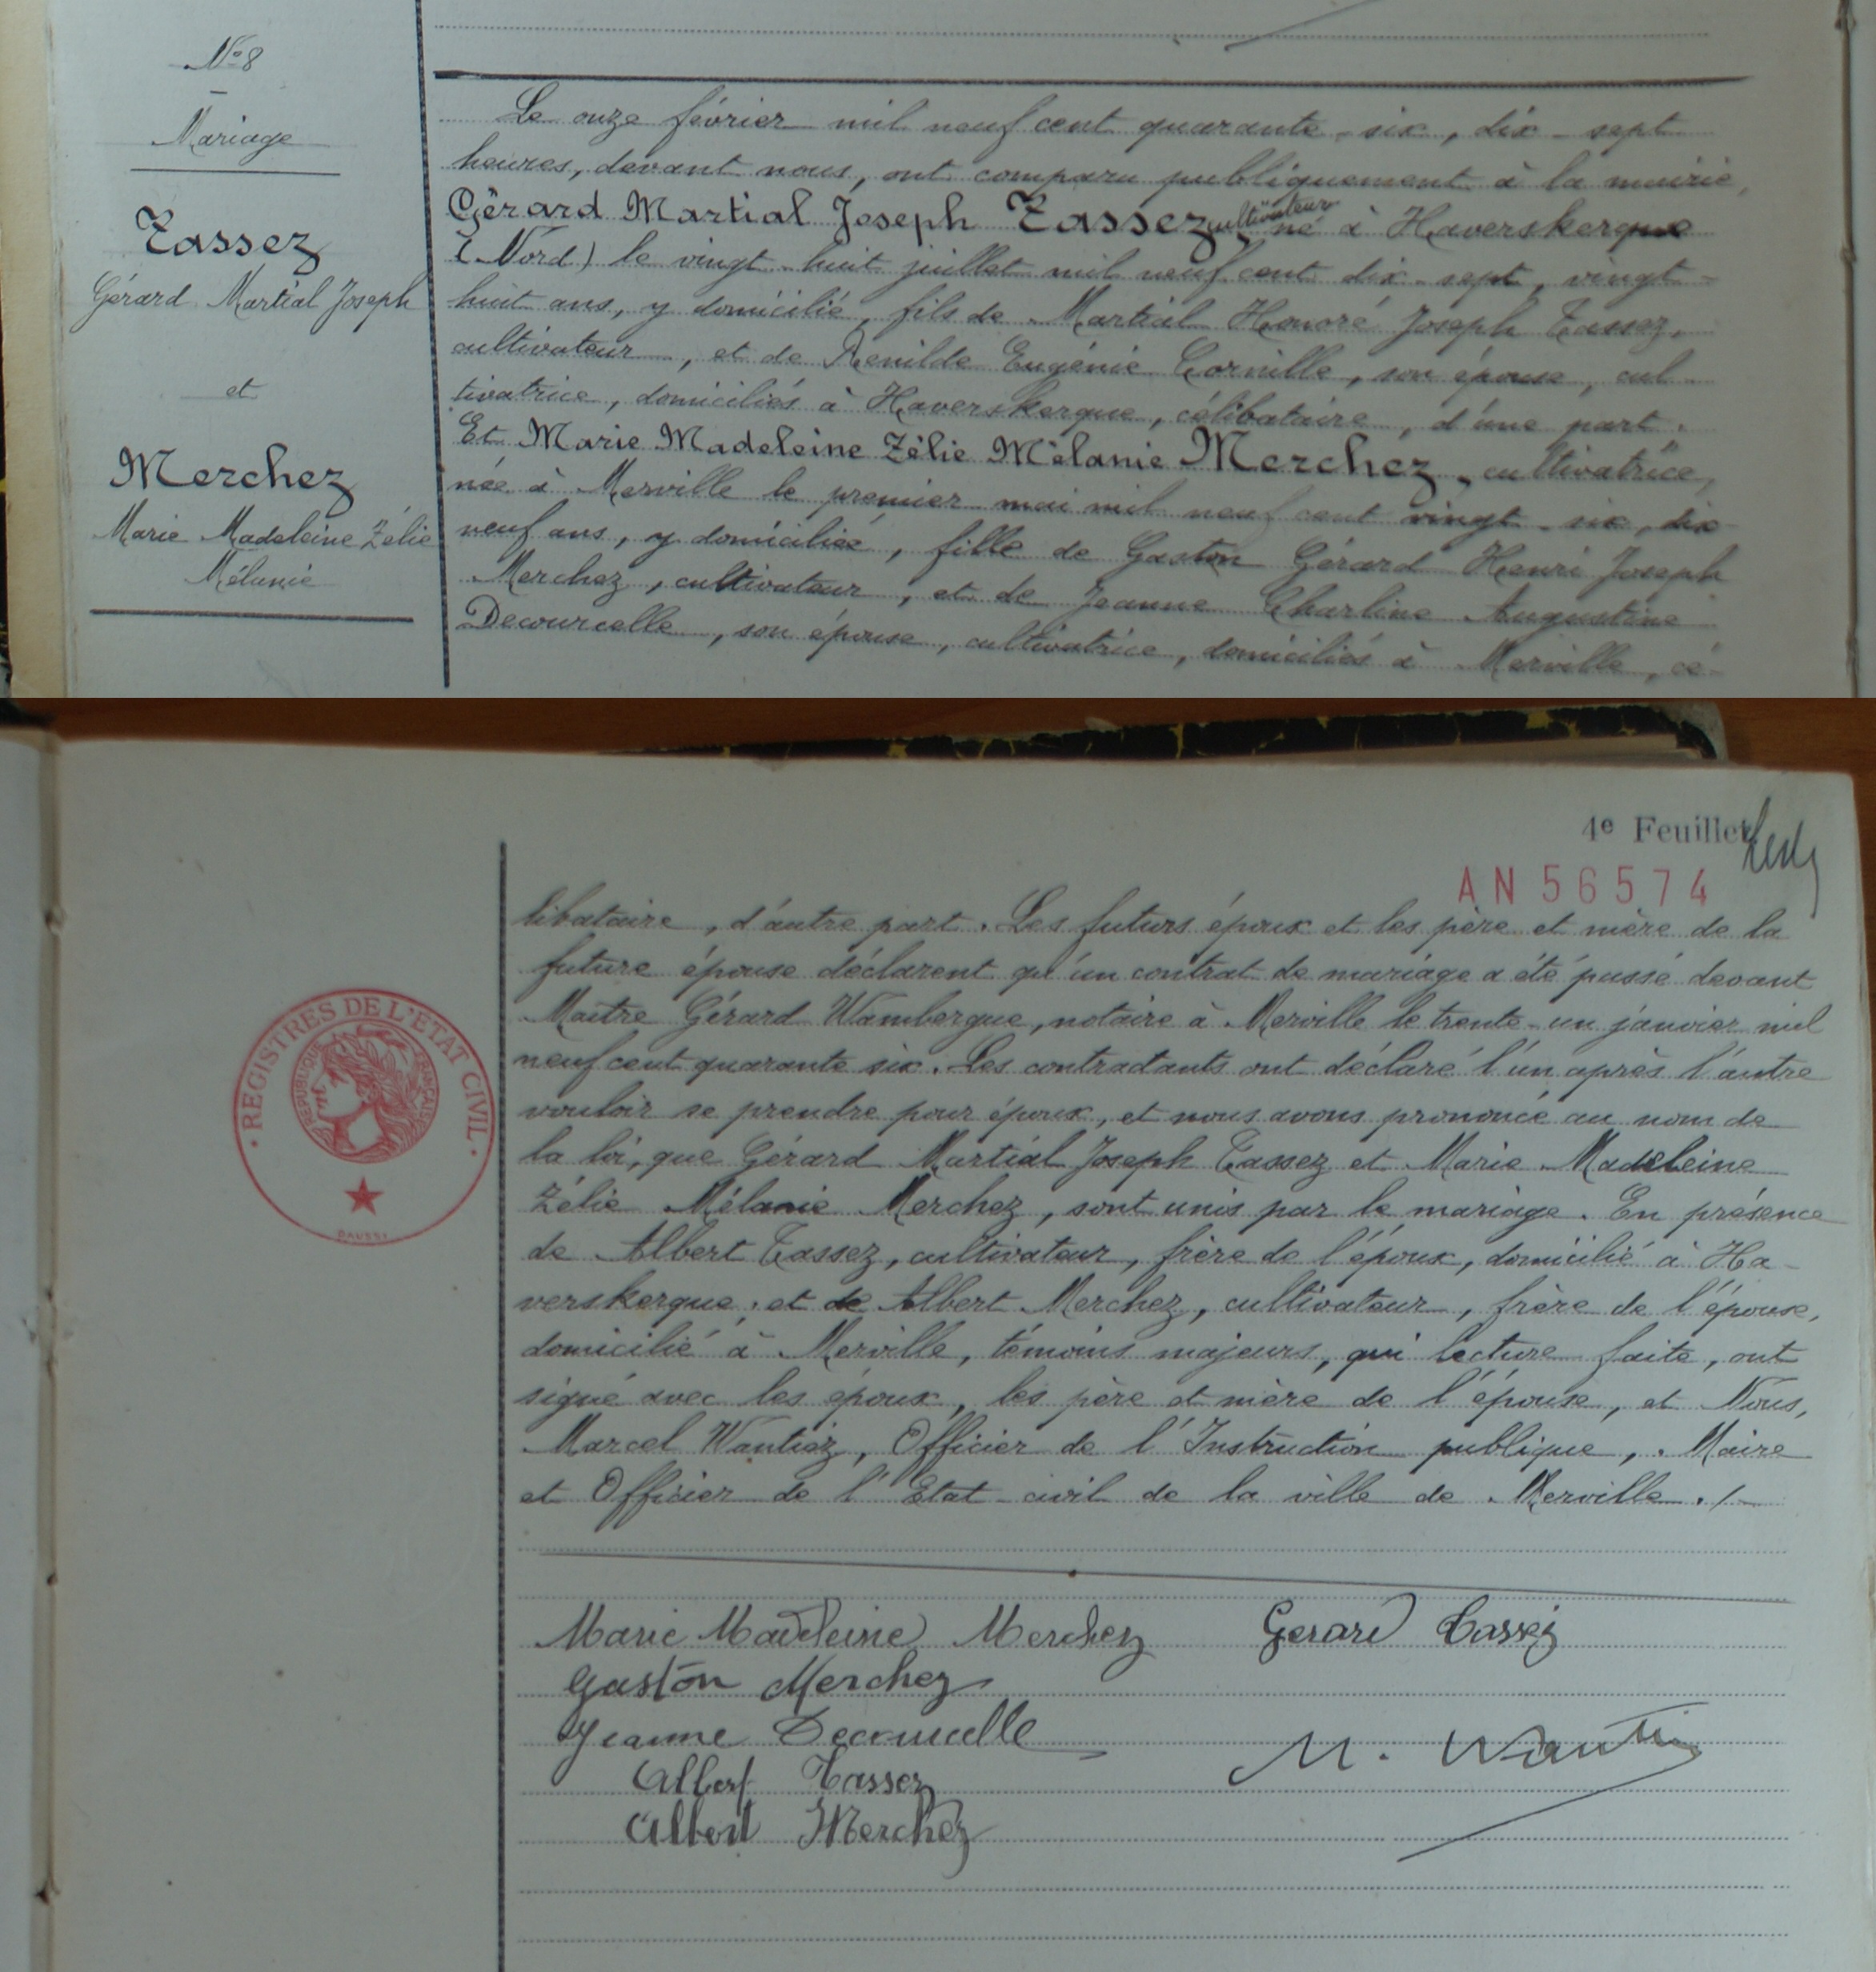 N° 8
Mariage
Tassez
Gérard Martial Joseph
et
Merchez
Marie Madeleine Zélie
Mélanie
Le onze février mil neuf cent quarante-six, dix-sept
heures, devant nous, ont comparu publiquement à la mairie,
Gérard Martial Joseph Tassez cultivateur né à Haverskerque
(Nord) le vingt-huit juillet mil neuf cent dix-sept, vingt-
huit ans, y domicilié, fils de Martial Honoré Joseph Tassez,
cultivateur, et de Renilde Eugénie Cornille, son épouse, cul
tivatrice, domiciliés à Haverskerque, célibataire, d'une part.
Et Marie Madeleine Zélie Mélanie Merchez, cultivatrice,
née à Merville le premier mai mil neuf cent vingt-six, dix
neuf ans, y domiciliée, fille de Gaston Gérard Henri Joseph
Merchez, cultivateur, et de Jeanne Charline Augustine
Decourcelle, son épouse, cultivatrice, domiciliés à Merville, cé-
4e Feuillet
AN 56574
libataire, d'autre part. Les futurs époux et les père et mère de la
future épouse déclarent qu'un contrat de mariage a été passé devant
Maître Gérard Wambergue, notaire à Merville le trente-un janvier mil
neuf cent quarante six. Les contractants ont déclaré l'un après l'autre
vouloir se prendre pour époux, et nous avons prononcé au nom de
la loi, que Gérard Martial Joseph Tassez et Marie Madeleine
Zélie Mélanie Merchez, sont unis par le mariage. En présence
de Albert Tassez, cultivateur, frère de l'époux, domicilié à Ha-
verskerque, et de Albert Merchez, cultivateur, frère de l'épouse,
domicilié à Merville, témoins majeurs, qui lecture faite, ont
signé avec les époux, les père et mère de l'épouse, et Nous,
Marcel Wantiez, Officier de l'Instruction publique, Maire
et Officier de l'Etat-civil de la ville de Merville ./-
REGISTRES DE L'ETAT CIVIL
REPUBLIQUE FRANÇAISE
DAUSSY
Marie Madeleine Merchez Gerard Tassez
Gaston Merchez
Jeanne Decourcelle
M. Wantiez
Albert Tassez
Albert Merchez